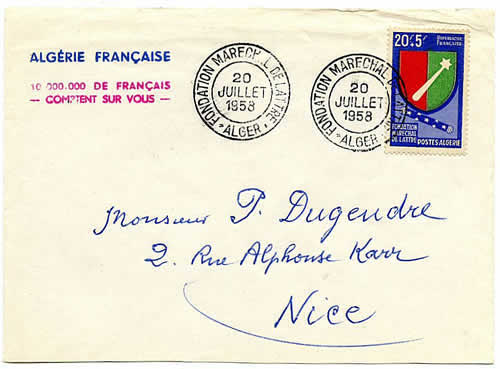 ALGÉRIE FRANÇAISE
10 000.000 DE FRANÇAIS
— COMPTENT SUR VOUS —
FONDATION MARECHAL DE LATTRE
20
JUILLET
1958
* ALGER *
FONDATION MARECHAL
20
JUILLET
1958
* ALGER
20F+5F
REPUBLIQUE
FRANÇAISE
FONDATION
MARECHAL
DE LATTRE
POSTES ALGERIE
Monsieur P. Dugendre
2. Rue Alphonse Karr
Nice